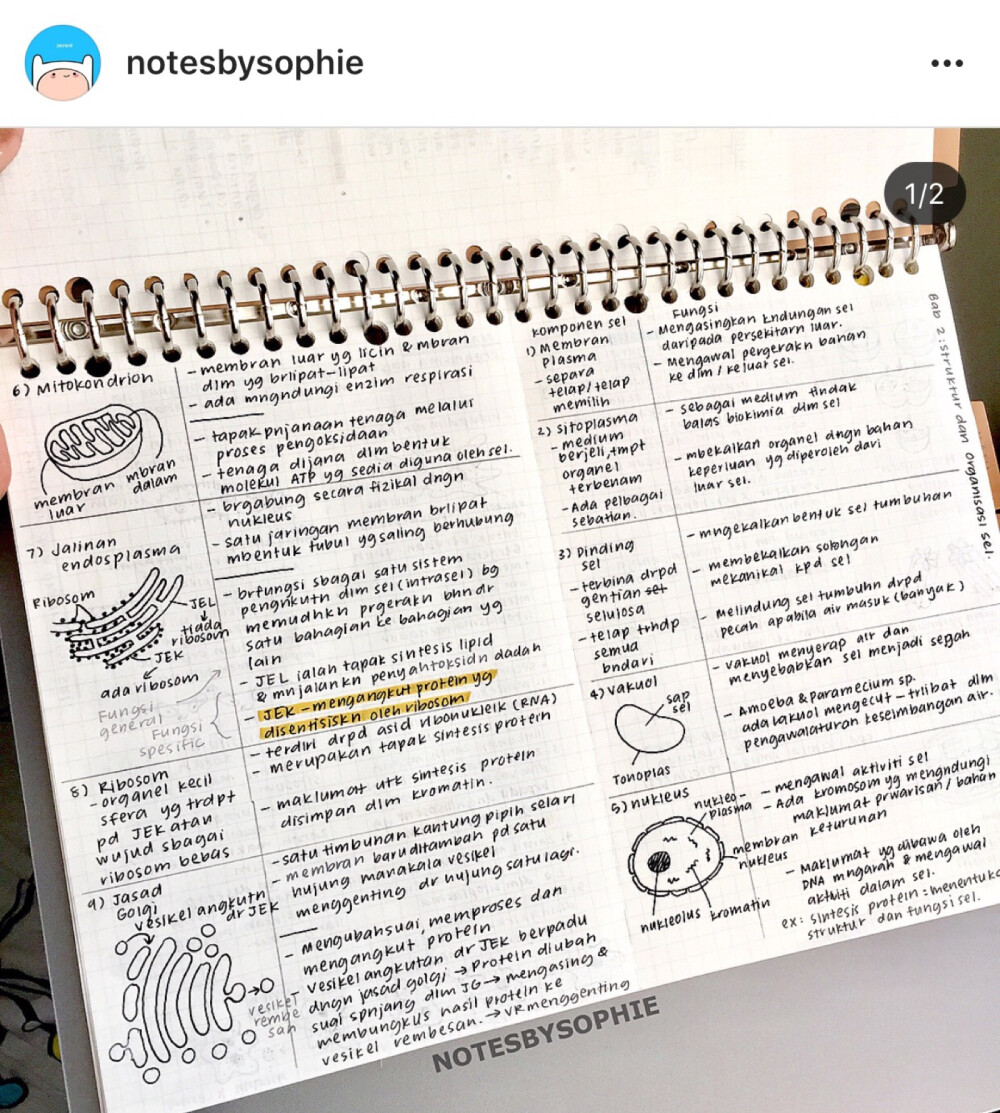 notesbysophie
1/2
Bab 2 : struktur dan organisasi sel.
komponen sel
Fungsi
1) Membran
plasma
- separa
telap/telap
memilih
- Mengasingkan kndungan sel
daripada persekitarn luar.
- Mengawal pergerakn bahan
ke dlm / keluar sel.
2) Sitoplasma
- medium
berjeli, tmpt
organel
terbenam
- Ada pelbagai
sebatian.
- sebagai medium tindak
balas biokimia dlm sel
- mbekalkan organel dngn bahan
keperluan yg diperoleh dari
luar sel.
3) Dinding
sel
- terbina drpd
gentian sel
selulosa
- telap trhdp
semua
bndavi
- mngekalkan bentuk sel tumbuhan
- membekalkan sokongan
mekanikal kpd sel
- Melindung sel tumbuhn drpd
pecah apabila air masuk (banyak)
4) Vakuol
sap
sel
Tonoplas
- vakuol menyerap air dan
menyebabkan sel menjadi segah
- Amoeba & Paramecium sp.
ada vakuol mengecut - trlibat dlm
pengawalaturan keseimbangan air.
5) nukleus
nukleo-
plasma
membran
nukleus
nukleolus kromatin
- mengawal aktiviti sel
- Ada kromosom yg mengndungi
maklumat prwarisan / bahan
keturunan
- Maklumat yg dibawa oleh
DNA mngarah & mengawal
aktiviti dalam sel.
ex: sintesis protein : menentukan
struktur dan fungsi sel.
6) Mitokondrion
membran luar
mbran dalam
- membran luar yg licin & mbran
dlm yg brlipat-lipat
- ada mngndungi enzim respirasi
- tapak pnjanaan tenaga melalui
proses pengoksidaan
- tenaga dijana dlm bentuk
molekul ATP yg sedia diguna oleh sel.
7) Jalinan
endosplasma
Ribosom
JEL
tiada
ribosom
JEK
ada ribosom
Fungsi
general
Fungsi
spesific
- brgabung secara fizikal dngn
nukleus
- satu jaringan membran brlipat
mbentuk tubul yg saling berhubung
- brfungsi sbagai satu sistem
pengnkutn dlm sel (intrasel) bg
memudhkn prgerakn bhn dr
satu bahagian ke bahagian yg
lain
- JEL ialah tapak sintesis lipid
& mnjalankn penyahtoksidn dadah
- JEK - mengangkut protein yg
disentisiskn oleh ribosom
8) Ribosom
- organel kecil
sfera yg trdpt
pd JEK atau
wujud sbagai
ribosom bebas
- terdiri drpd asid ribonukleik (RNA)
- merupakan tapak sintesis protein
- maklumat utk sintesis protein
disimpan dlm kromatin.
9) Jasad
Golgi
vesikel angkutn
dr JEK
vesikel
rembe
san
- satu timbunan kantung pipih selari
- membran baru ditambah pd satu
hujung manakala vesikel
menggenting dr hujung satu lagi.
- mengubahsuai, memproses dan
mengangkut protein
- vesikel angkutan dr JEK berpadu
dngn jasad golgi → protein diubah
suai spnjang dlm JG → mengasing &
membungkus hasil protein ke
vesikel rembesan. → VR menggenting
NOTESBYSOPHIE